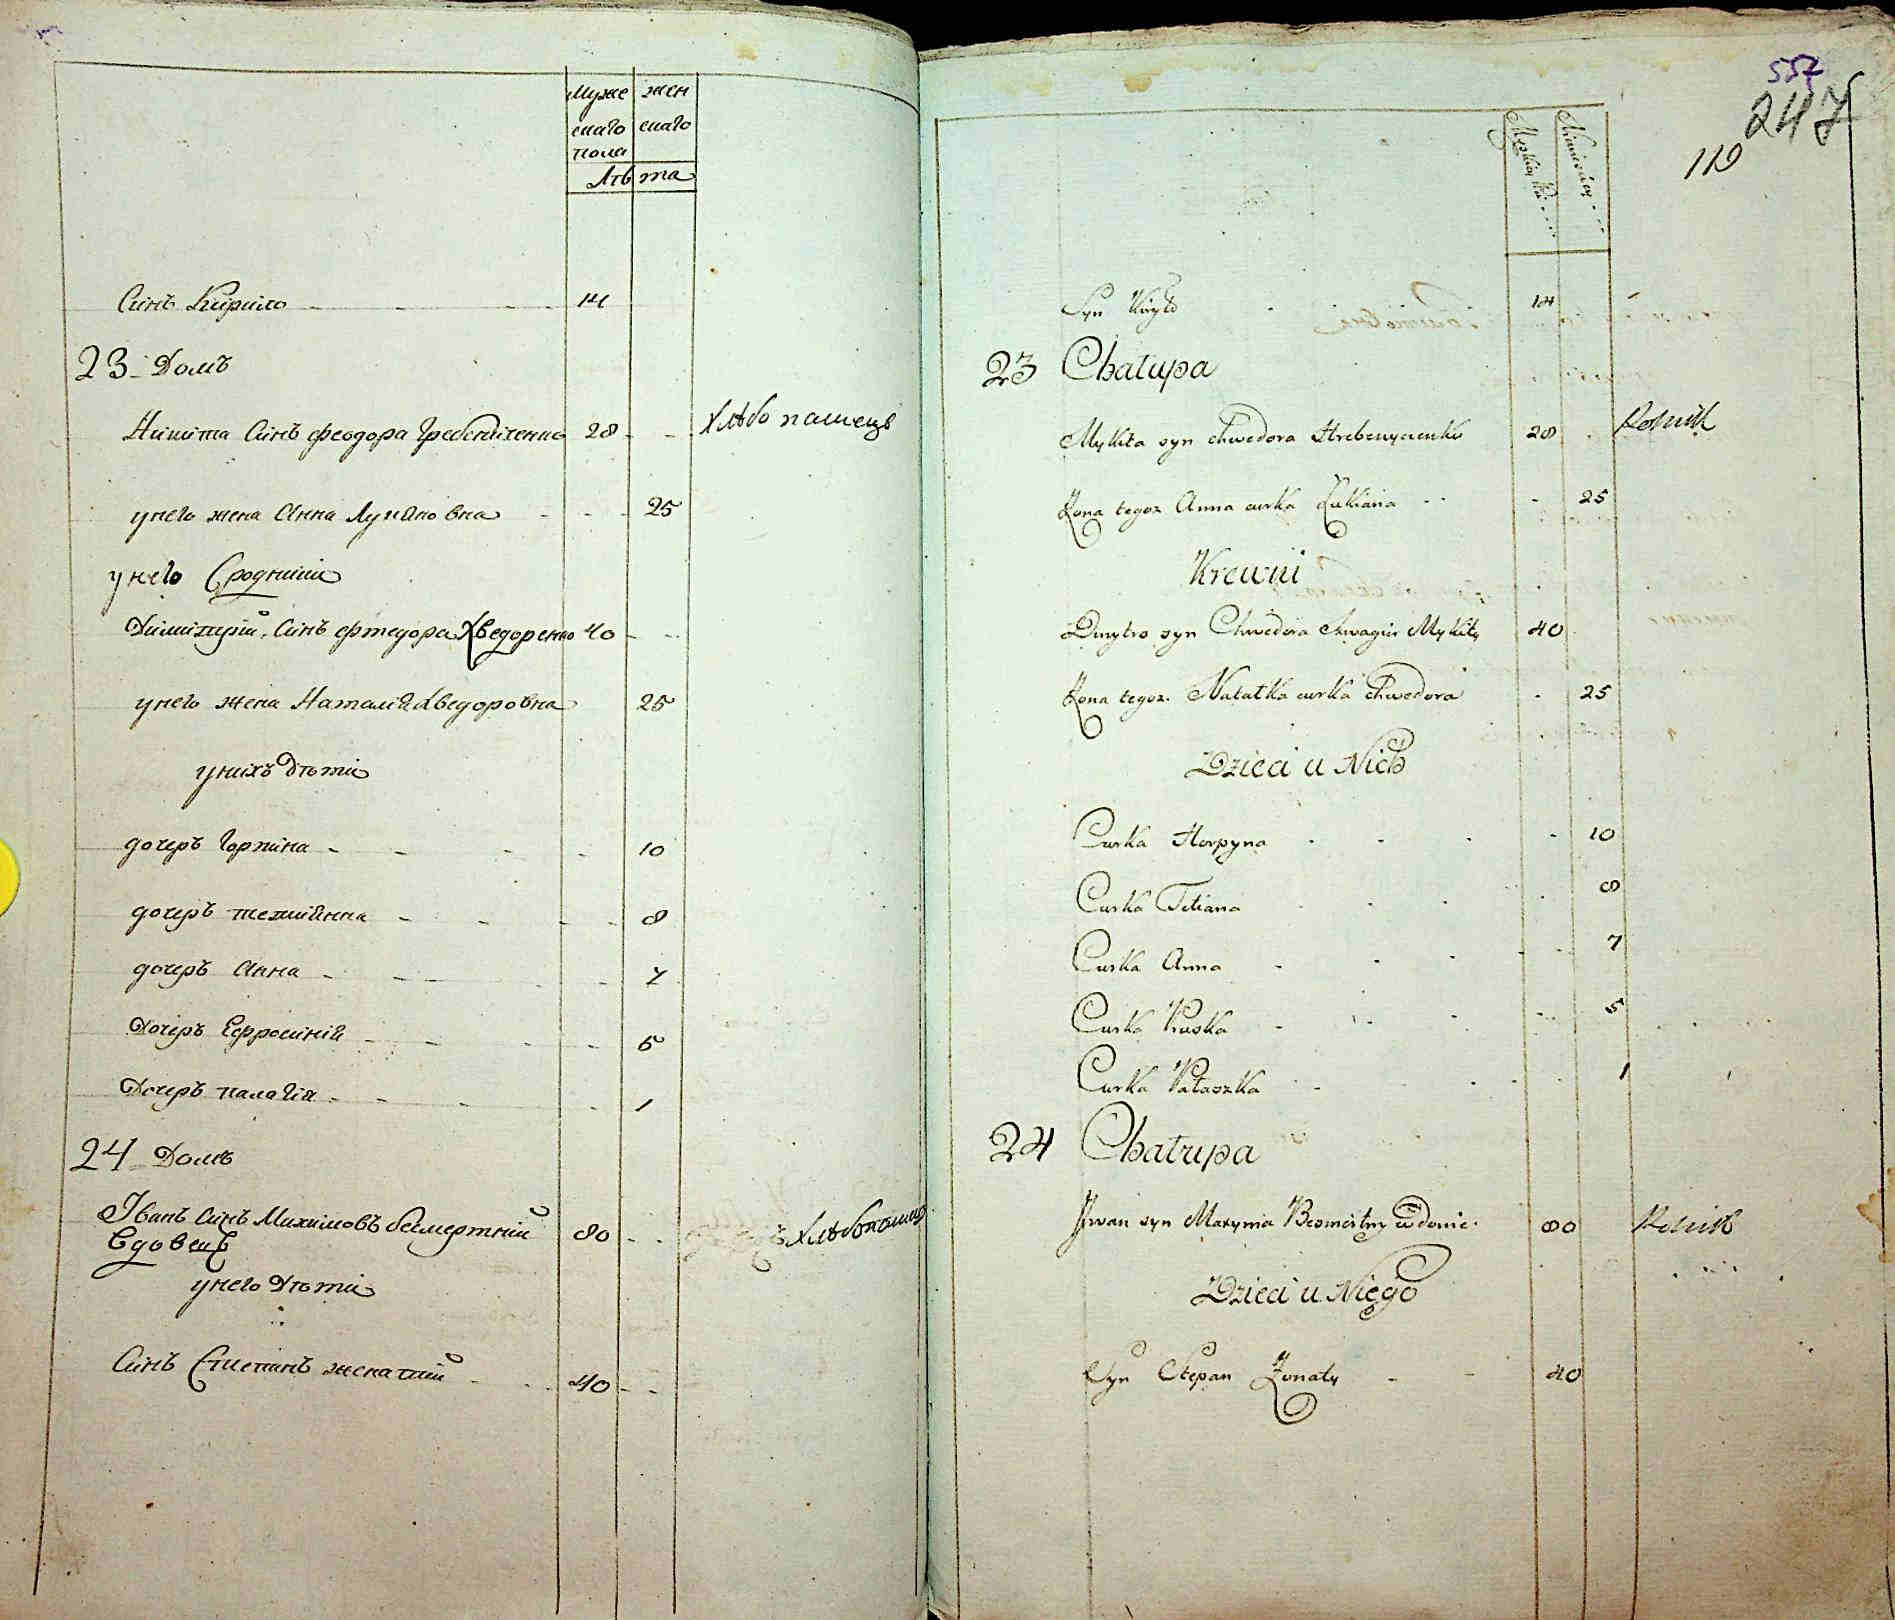 Муже жен
скаго скаго
пола
Лѣта
Синъ Кирило 14
23 Домъ
Никита Синъ феодора Гребенюченко 28 Хлѣбопашецъ
унего жена Анна Лукяновна 25
унего Сродники
Димитрій Синъ фтедора Хведоренко 40
унего жена Наталія Хведоровна 25
унихъ Дѣти
дочеръ Горпина 10
дочеръ тетиянна 8
дочеръ Анна 7
Дочеръ Ефросинія 5
Дочеръ палагія 1
24 Домъ
Іванъ Синъ Махимовъ безмертній 80 Хлѣбопашец
Вдовецъ
унего Дѣти
Синъ Степанъ женатий 40
557
247
110
Syn Kiryło 14
23 Chałupa
Mykita syn Chwedora Hrebenyczenko 28 Rolnik
Żona tegoż Anna curka Łukiana 25
Krewni
Dmytro syn Chwedora szwagier Mykity 40
Żona tegoż Natałka curka Chwedora 25
Dzieci u Nich
Curka Horpyna 10
Curka Tetiana 8
Curka Anna 7
Curka Pruska 5
Curka Pałaszka 1
24 Chałupa
Iwan syn Maxyma Besmertny wdowiec 80 Rolnik
Dzieci u Niego
Syn Stepan Żonaty 40